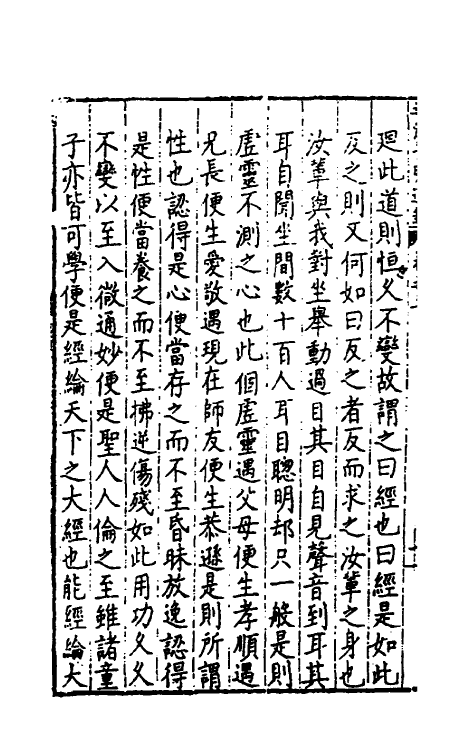 廻此道則恒久不變故謂之曰經也曰經是如此
反之則又何如曰反之者反而求之汝軰之身也
汝軰與我對坐舉動過目其目自見聲音到耳其
耳自聞坐間數十百人耳目聰明却只一般是則
虛靈不測之心也此個虛靈遇父母便生孝順遇
兄長便生愛敬遇現在師友便生恭遜是則所謂
性也認得是心便當存之而不至昏昧放逸認得
是性便當養之而不至拂逆傷殘如此用功久久
不變以至入微通妙便是聖人人倫之至雖諸童
子亦皆可學便是經綸天下之大經也能經綸大